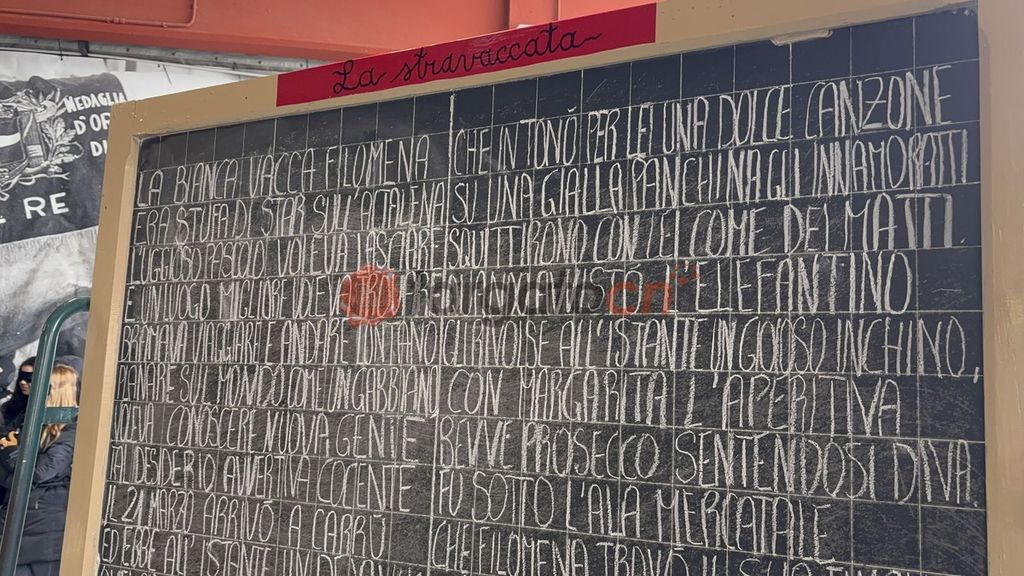 La stravaccata
MEDAGLIA
D'OR
DI
RE
LA BIANCA VACCA FILOMENA
ERA STUFA DI STAR SULL'ALTALENA
L'UGGIOSO PASCOLO VOLEVA LASCIARE
E UN LUOGO MIGLIORE
BRAMAVA VIAGGIARE ANDARE LONTANO
PLANARE SUL MONDO COM'UN GABBIANO
VOLEVA CONOSCERE NUOVA GENTE
TAL DESIDERIO AVVERTIVA COCENTE
IL 21 MARZO ARRIVÒ A CARRÙ
ED EBBE ALL'ISTANTE UN
CHE INTONÒ PER LEI UNA DOLCE CANZONE
SU UNA GIALLA PANCHINA GLI INNAMORATI
SQUITTIRONO CON LEI COME DEI MATTI.
L'ELEFANTINO
GLI RIVOLSE ALL'ISTANTE UN GOFFO INCHINO,
CON MARGARITA L'APERITIVA
BEVVE PROSECCO SENTENDOSI DIVA
FU SOTTO L'ALA MERCATALE
CHE FILOMENA TROVÒ IL
targatocn